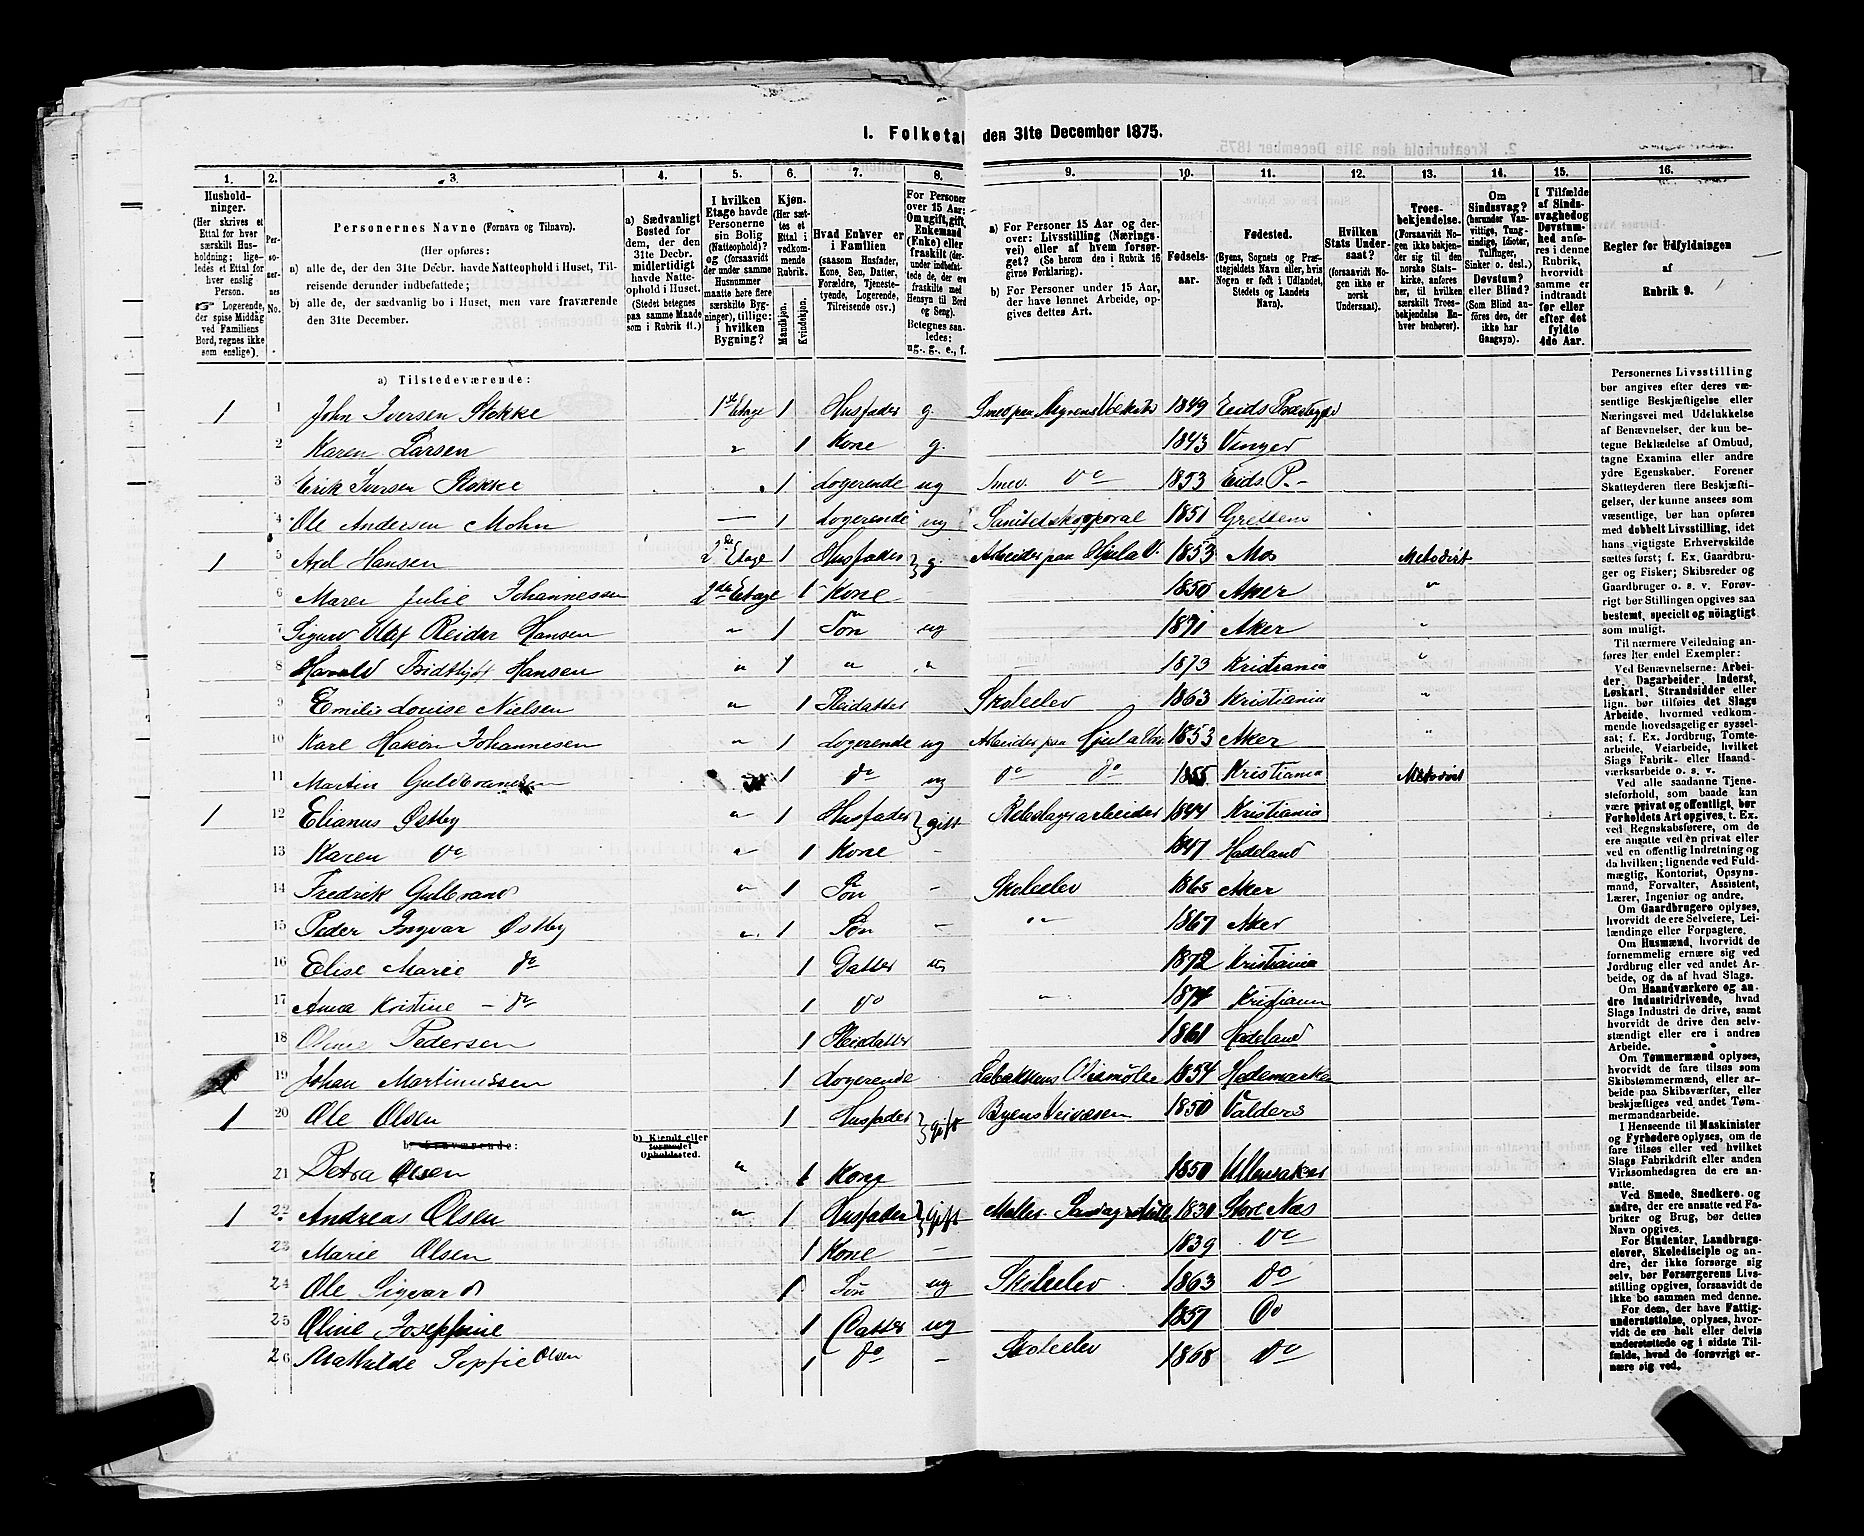 I. Folketal den 31te December 1875.
1. 2. 3. 4. 5. 6. 7. 8. 9. 10. 11. 12. 13. 14. 15. 16.
Husholdninger. (Her skrives et Ettal for hver særskilt Husholdning; ligeledes et Ettal for hver enslig Person. Logerende, der spise Middag ved Familiens Bord, regnes ikke som enslige).
Personernes No.
Personernes Navne (Fornavn og Tilnavn).
(Her opføres:
a) alle de, der den 31te Decbr. havde Natteophold i Huset, Tilreisende derunder indbefattede;
b) alle de, der sædvanlig bo i Huset, men vare fraværende den 31te December.
a) Sædvanligt Bosted for dem, der den 31te Decbr. midlertidigt havde Natteophold i Huset. (Stedet betegnes paa samme Maade som i Rubrik 11.)
I hvilken Etage havde Personerne sin Bolig (Natteophold)? og (forsaavidt der under samme Husnummer maatte høre flere særskilte Bygninger), tillige: i hvilken Bygning?
Kjøn. (Her sættes et Ettal i vedkommende Rubrik.
Mandkjøn. Kvindekjøn.
Hvad Enhver er i Familien (saasom Husfader, Kone, Søn, Datter, Forældre, Tjenestetyende, Logerende, Tilreisende osv.)
For Personer over 15 Aar: Om ugift, gift, Enkemand (Enke) eller fraskilt (derunder indbefattede de, der ere fraskilte med Hensyn til Bord og Seng). Betegnes saaledes: ug., g., e., f.
a) For Personer 15 Aar og derover: Livsstilling (Næringsvei) eller af hvem forsørget? (Se borem den i Rubrik 16 givne Forklaring).
b) For Personer under 15 Aar, der have lønnet Arbeide, opgives dettes Art.
Fødselsaar.
Fødested. (Byens, Sognets og Præstegjeldets Navn eller, hvis Nogen er født i Udlandet, Stedets og Landets Navn).
Hvilken Stats Undersaat? (forsaavidt Nogen ikke er norsk Undersaat).
Troesbekjendelse. (Forsaavidt Nogen ikke bekjender sig til den norske Statskirke, anføres her, til hvilken særskilt Troesbekjendelse Enhver benhører).
Om Sindssvag? (herunder Vanvittige, Tungsindige, Idioter, Tullinger, Sinker o. desl.) Døvstum? eller Blind? (Som Blind anføres den, der ikke har Gangsyn).
I Tilfælde af Sindssvaghed og Døvstumhed anføres i denne Rubrik, hvorvidt samme er indtraadt før eller efter det fyldte 4de Aar.
Regler for Udfyldningen af Rubrik 9.
a) Tilstedeværende:
1 1 John Iversen Stokke 1ste Etage 1 Husfader g. Smed paa Myrens 1849 Eids Præstegjed
2 Karen Larsen „ 1 Kone g. 1843 Vinger
3 Erik Iversen Stokke 1 Logerende ug Smed do 1853 Eids P.
4 Ole Andersen Mohn — 1 Logerende ug Sanitetskorporal 1851 Gretten
1 5 Axel Hansen 2de Etage 1 Husfader g. Arbeider paa Hjula V. 1853 Mos Metodist
6 Maren Julie Johannessen 2de Etage 1 Kone 1850 Aker „
7 Sigurd Olaf Reidar Hansen „ 1 Søn ug 1871 Aker „
8 Harald Fridthjof Hansen „ 1 „ „ 1873 Kristiania „
9 Emilie Louise Nielsen „ 1 Pleidatter Skoleelev 1863 Kristiania „
10 Karl Hakon Johannesen „ 1 Logerende ug Arbeider paa Hjula 1853 Aker
11 Martin Guldbrandsen 1 do ug do do 1855 Kristiania Metodist
1 12 Elianus Østby „ 1 Husfader gift Rebslagerarbeider 1844 Kristiania
13 Karen do „ 1 Kone - 1847 Hadeland
14 Fredrik Gulbrand „ 1 Søn - Skoleelev 1865 Aker
15 Peder Ingvar Østby „ 1 Søn - „ 1867 Aker
16 Elise Marie do 1 Datter 1872 Kristiania
17 Anna Kristine - do 1 do „ 1874 Kristiania
18 Oline Pedersen 1 Pleidatter 1861 Hadeland
19 Johan Martinussen 1 Logerende 1854 Hedemarken
1 20 Ole Olsen 1 Husfader gift Byens Veivæsen 1850 Valders
b) Fraværende: b) Kjendt eller formodet Opholdssted.
21 Petra Olsen „ 1 Kone 1850 Ullensaker
1 22 Andreas Olsen „ 1 Husfader gift Møller 1830 Store Næs
23 Marie Olsen 1 Kone - 1839 do
24 Ole Sigvard 1 Søn ug Skoleelev 1863 do
25 Oline Josephine 1 Datter ug 1857 do
26 Mathilde Sopfie Olsen 1 do - Skoleelev 1868 do
Personernes Livsstilling
bør angives efter deres væ-
sentlige Beskjæftigelse eller
Næringsvei med Udelukkelse
af Benævnelser, der kun be-
tegne Beklædelse af Ombud,
tagne Examina eller andre
ydre Egenskaber. Forener
Skatteyderen flere Beskjæfti-
gelser, der kunne ansees som
væsentlige, bør han opføres
med dobbelt Livsstilling, idet
hans vigtigste Erhvervskilde
sættes først; f. Ex. Gaardbru-
ger og Fisker; Skibsreder og
Gaardbruger o. s. v. Forøv-
rigt bør Stillingen opgives saa
bestemt, specielt og nöiagtigt
som muligt.
Til nærmere Veiledning an-
føres her endel Exempler:
Ved Benævnelserne: Arbei-
der, Dagarbeider, Inderst,
Løskarl, Strandsidder eller
lign. bør tilføies det Slags
Arbeide, hvormed vedkom-
mende hovedsagelig er syssel-
sat; f. Ex. Jordbrug, Tomte-
arbeide, Veiarbeide, hvilket
Slags Fabrik- eller Haand-
værksarbeide o. s. v.
Ved alle saadanne Tjene-
steforhold, som baade kan
være privat og offentligt, bør
Forholdets Art opgives, t. Ex.
ved Regnskabsførere, om de
ere ansatte ved en privat eller
ved en offentlig Indretning og
da hvilken; lignende ved Fuld-
mægtig, Kontorist, Opsyns-
mand, Forvalter, Assistent,
Lærer, Ingeniør og andre.
Om Gaardbrugere oplyses,
hvorvidt de ere Selveiere, Lei-
lændinge eller Forpagtere.
Om Husmænd, hvorvidt de
fornemmelig ernære sig ved
Jordbrug eller ved andet Ar-
beide, og da af hvad Slags.
Om Haandværkere og an-
dre Industridrivende, hvad
Slags Industri de drive, samt
hvorvidt de drive den selv-
stændigt eller ere i andres
Arbeide.
Om Tømmermænd oplyses,
hvorvidt de fare tilsøs som
Skibstømmermænd, eller ar-
beide paa Skibsværfter, eller
beskjæftiges ved andet Tøm-
mermandsarbeide.
I Henseende til Maskinister
og Fyrbødere oplyses, om de
fare tilsøs eller ved hvilket
Slags Fabrikdrift eller anden
Virksomhedsgren de ere an-
satte.
Ved Smede, Snedkere og
andre, der ere ansatte ved Fa-
briker og Brug, bør dettes
Navn opgives.
For Studenter, Landbrugs-
elever, Skoledisciple og an-
dre, der ikke forsørge sig
selv, bør Forsørgerens Livs-
stilling opgives, forsaavidt de
ikke bo sammen med denne.
For dem, der have Fattig-
understøttelse, oplyses, hvor-
vidt de ere helt eller delvis
understøttede og i sidste Til-
fælde, hvad de forøvrigt er-
nære sig ved.